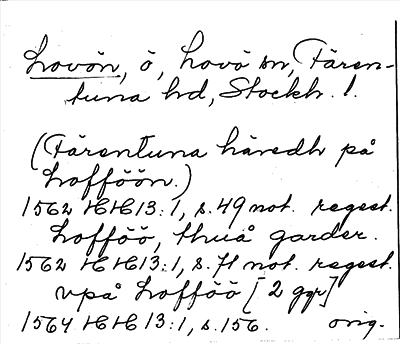 Lovön, ö, Lovö sn, Fären-
tuna hd, Stockh. l.
(Färentuna häredh på
Lofföön.)
1562 HH 13:1, s. 49 not. regest.
Lofföö, thuå garder.
1562 HH 13:1, s. 71 not. regest.
vpå Lofföö [2 ggr]
1564 HH 13:1, s. 156. orig.